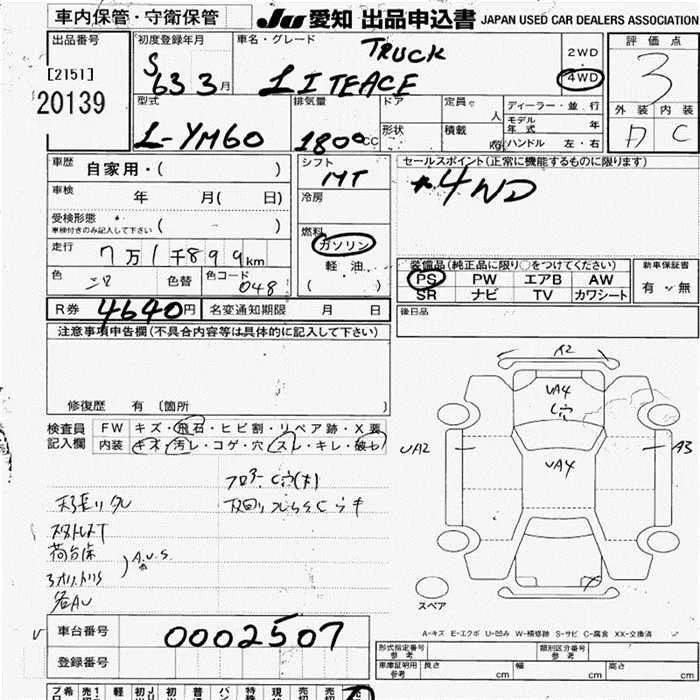 車内保管・守衛保管
JU 愛知 出品申込書 JAPAN USED CAR DEALERS ASSOCIATION
出品番号
[2151]
20139
初度登録年月
S 63 3月
車名・グレード
TRUCK
LITEACE
2WD
・
4WD
評価点
3
外装 内装
A C
型式
L-YM60
排気量
1800cc
ドア
形状
定員
人
積載
kg
ディーラー・並行
モデル年式 年
ハンドル 左・右
車歴
自家用・( )
車検
年 月( 日)
受検形態
車検付きのみ記入して下さい ( )
走行
7万1千899km
色
色替
色コード
048
シフト
MT
冷房
燃料
ガソリン
軽油
( )
セールスポイント(正常に機能するものに限ります)
*4WD
装備品(純正品に限り○をつけてください)
PS PW エアB AW
SR ナビ TV カワシート
新車保証書
有・無
R券 4640円
名変通知期限 月 日
後日品
注意事項申告欄(不具合内容等は具体的に記入して下さい)
修復歴 有〔箇所 〕
検査員記入欄
FW キズ・飛石・ヒビ割・リペア跡・X要
内装 キズ・汚レ・コゲ・穴・スレ・キレ・破レ
フロアーC穴(キ)
天張りタレ
下回りフレームC
A.U.S.
各AU
A2
UA4
C穴
UA2
UA4
A3
スペア
A=キズ E=エクボ U=凹み W=補修跡 S=サビ C=腐食 XX=交換済
車台番号
0002507
登録番号
形式指定番号
参考
類別区分番号
参考
車庫証明用
参考
長さ cm 幅 cm 高さ cm